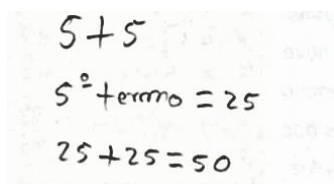 5+5
5º termo = 25
25+25=50